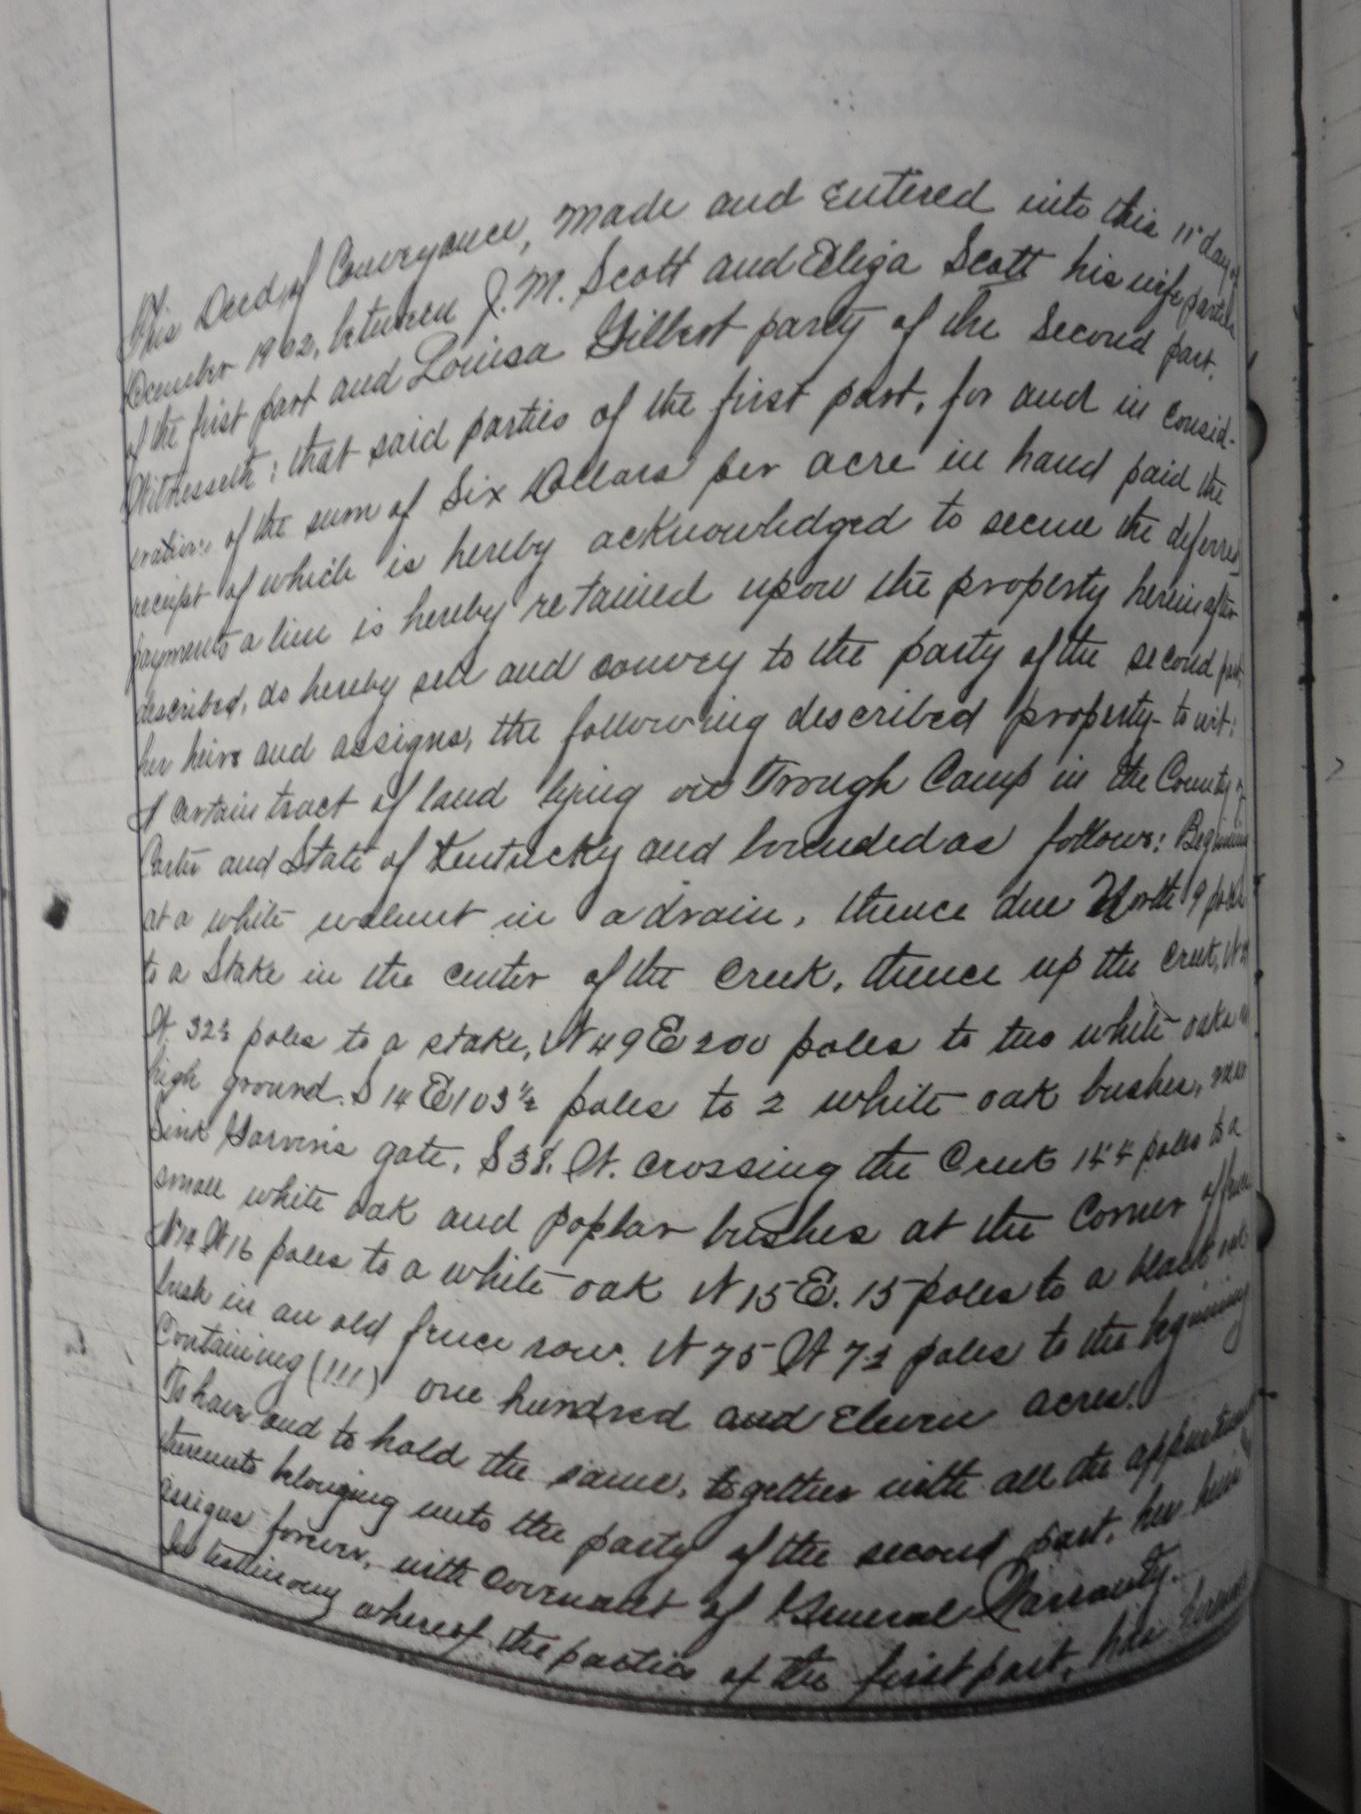 This Deed of Conveyance, Made and Entered into this 11" day of
December 1902, between J. M. Scott and Eliza Scott his wife parties
of the first part and Louisa Gilbert party of the Second part.
Witnesseth: that said parties of the first part, for and in consid-
eration of the sum of Six Dollars per acre in hand paid the
receipt of which is hereby acknowledged to secure the deferred
payments a lien is hereby retained upon the property herein after
described, do hereby sell and convey to the party of the second part,
her heirs and assigns, the following described property- to wit:
A certain tract of land lying on Trough Camp in the County of
Carter and State of Kentucky and bounded as follows: Beginning
at a white walnut in a drain, thence due North 9 poles
to a Stake in the center of the creek, thence up the creek, N
W. 32½ poles to a stake, N 49 E 200 poles to two white oaks on
high ground. S 14 E 103½ poles to 2 white oak bushes, near
Sink Garvins gate, S 38. W. crossing the Creek 144 poles to a
small white oak and poplar bushes at the Corner of fence
N 14 W 16 poles to a white oak N 15 E. 15 poles to a black oak
bush in an old fence row. N 75 W 72 poles to the begining
Containing (111) one hundred and Eleven acres.
To have and to hold the same, together with all the appurten
tenents belonging unto the party of the second part, her heirs &
assigns forever, with Covenant of General Warranty.
In testimony whereof the parties of the first part, has hereunto